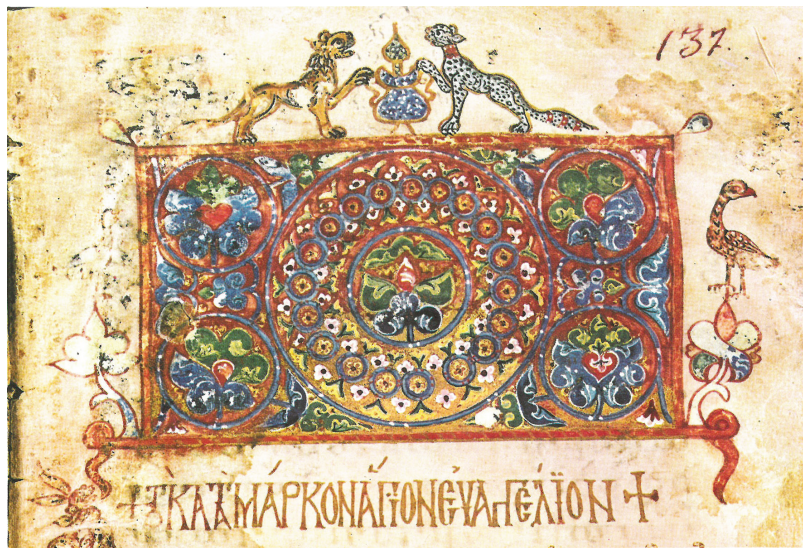 137
+ΤῸ ΚΑΤᾺ ΜΆΡΚΟΝ ἍΓΙΟΝ ΕΥ̓ΑΓΓΈΛΪΟΝ+